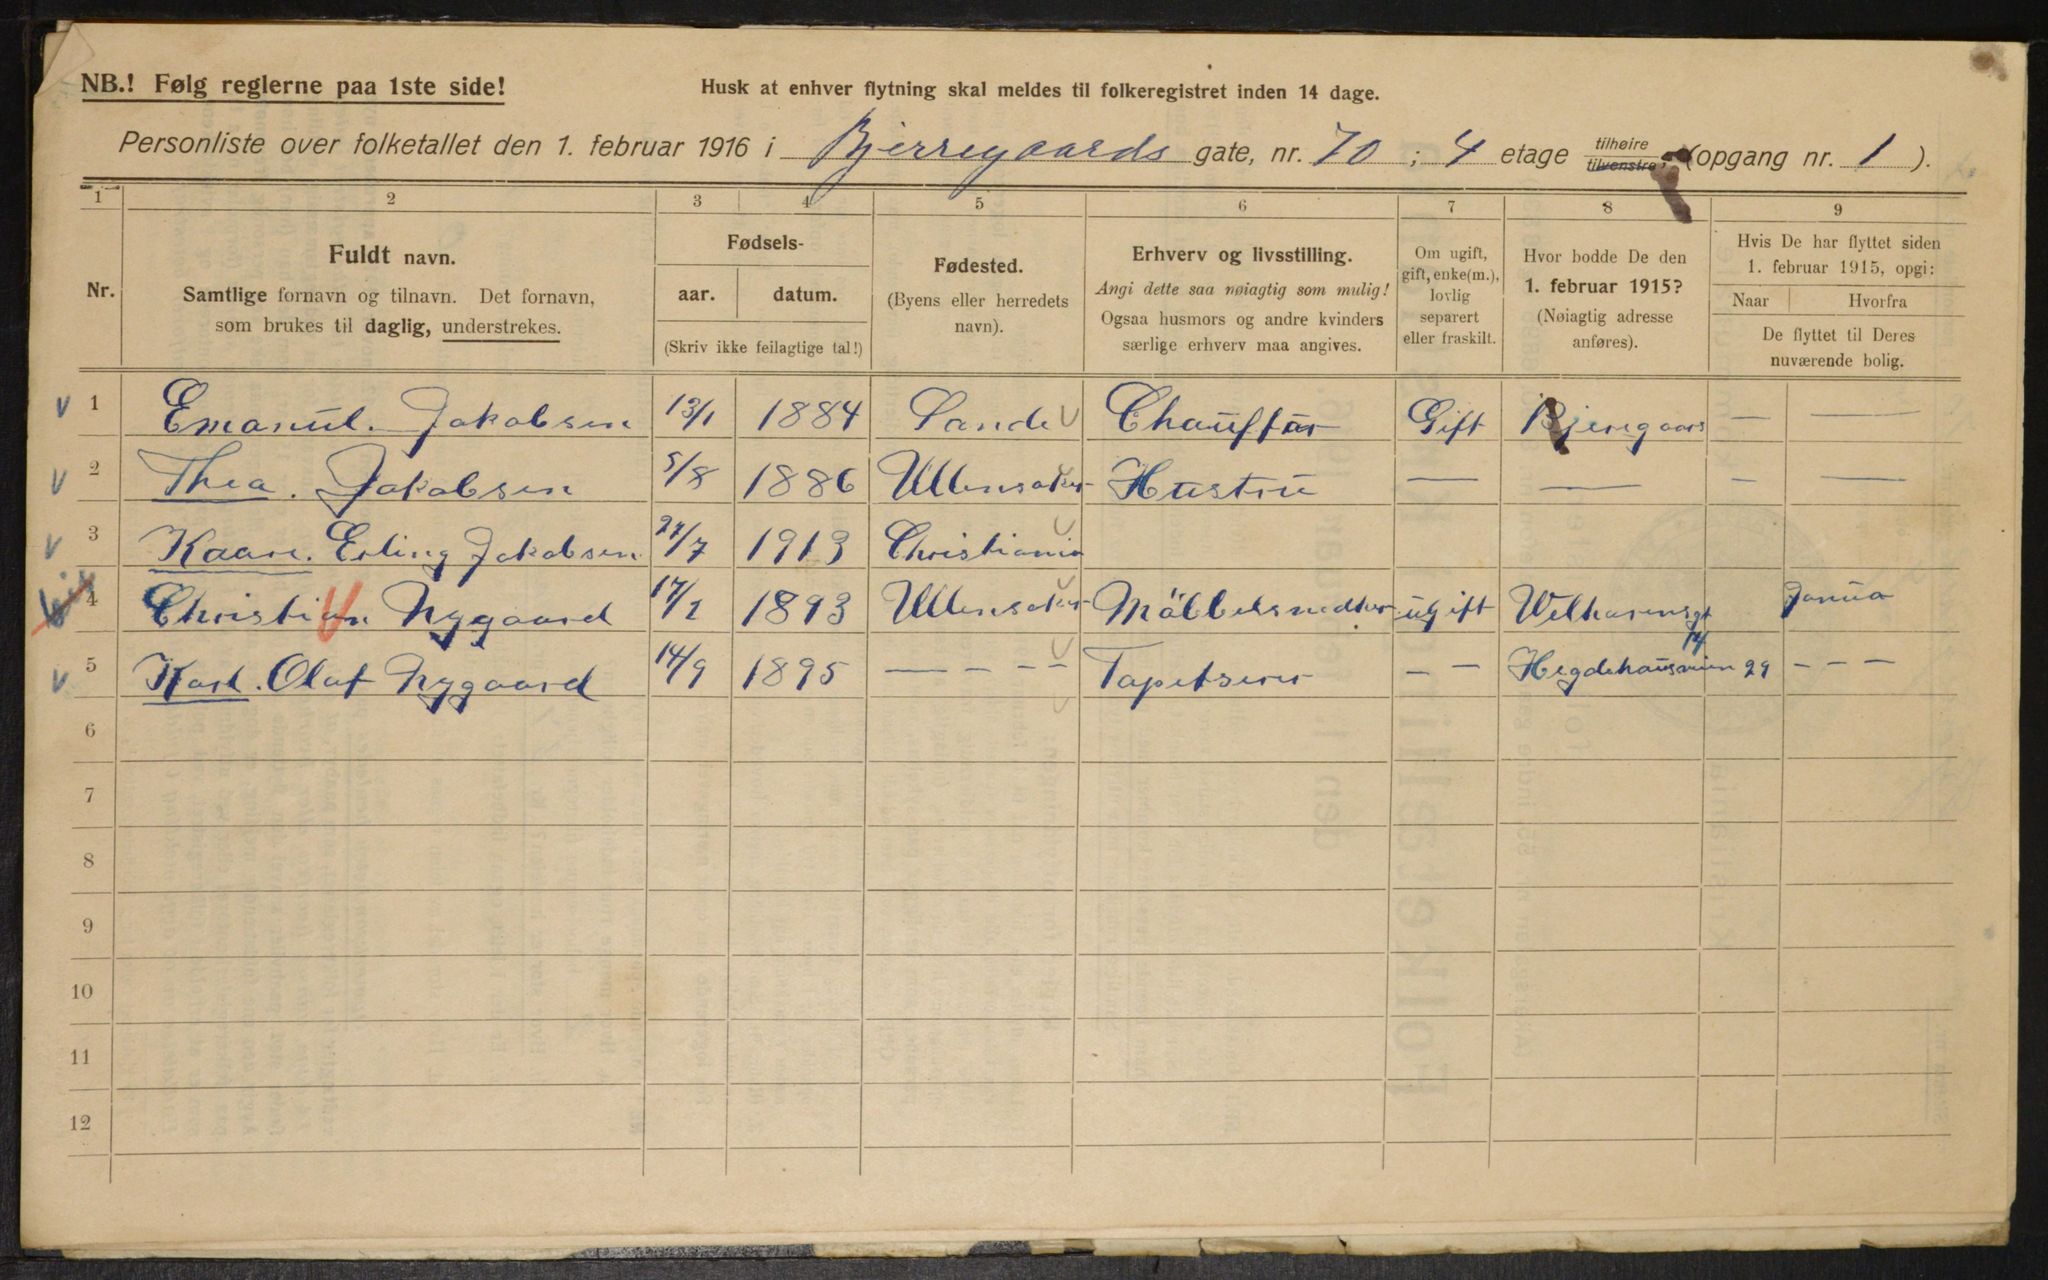 NB.! Følg reglerne paa 1ste side!
Husk at enhver flytning skal meldes til folkeregistret inden 14 dage.
Personliste over folketallet den 1. februar 1916 i Bjerregaards gate, nr. 70 ; 4 etage tilhøire tilvenstre, (opgang nr. 1 ).
1 2 3 4 5 6 7 8 9
Nr.
Fuldt navn.
Samtlige fornavn og tilnavn. Det fornavn,
som brukes til daglig, understrekes.
Fødsels-
aar. datum.
(Skriv ikke feilagtige tal!)
Fødested.
(Byens eller herredets
navn).
Erhverv og livsstilling.
Angi dette saa nøiagtig som mulig!
Ogsaa husmors og andre kvinders
særlige erhverv maa angives.
Om ugift,
gift, enke(m.),
lovlig
separert
eller fraskilt.
Hvor bodde De den
1. februar 1915?
(Nøiagtig adresse
anføres).
Hvis De har flyttet siden
1. februar 1915, opgi:
Naar Hvorfra
De flyttet til Deres
nuværende bolig.
1 Emanuel. Jakobsen 13/1 1884 Sande Chauffør Gift Bjeregaars — —
2 Thea. Jakobsen 5/8 1886 Ullensaker Hustru — — — —
3 Kaare. Erling Jakobsen /7 1913 Christiania
4 Christian Nygaard 17/1 1893 Ullensaker Möbbelsnedker ugift Welhavensgt 14 Janua
5 Karl. Olaf Nygaard 14/9 1895 — – – – Tapetserer – – Hegdehausveien 29 – – –
6
7
8
9
10
11
12